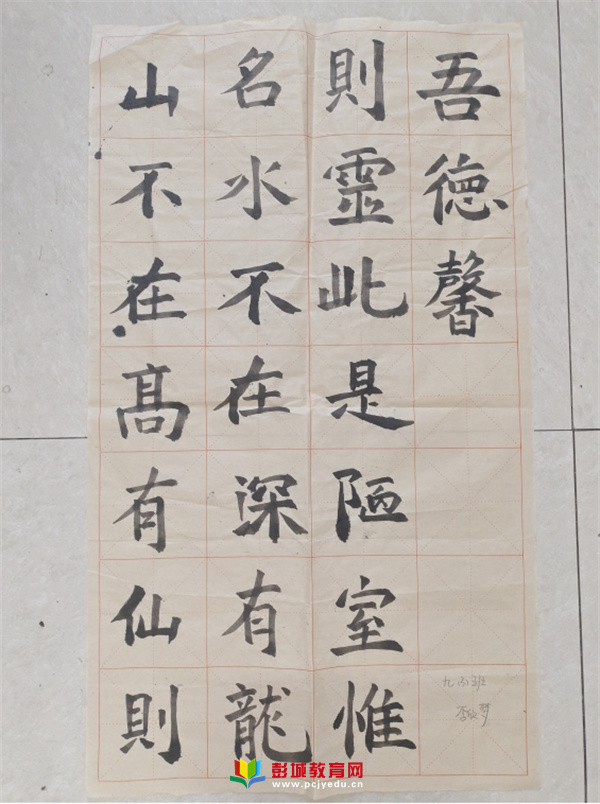 山不在髙有仙則
名水不在深有龍
則靈此是陋室惟
吾徳馨
彭城教育网
www.pcjyedu.cn